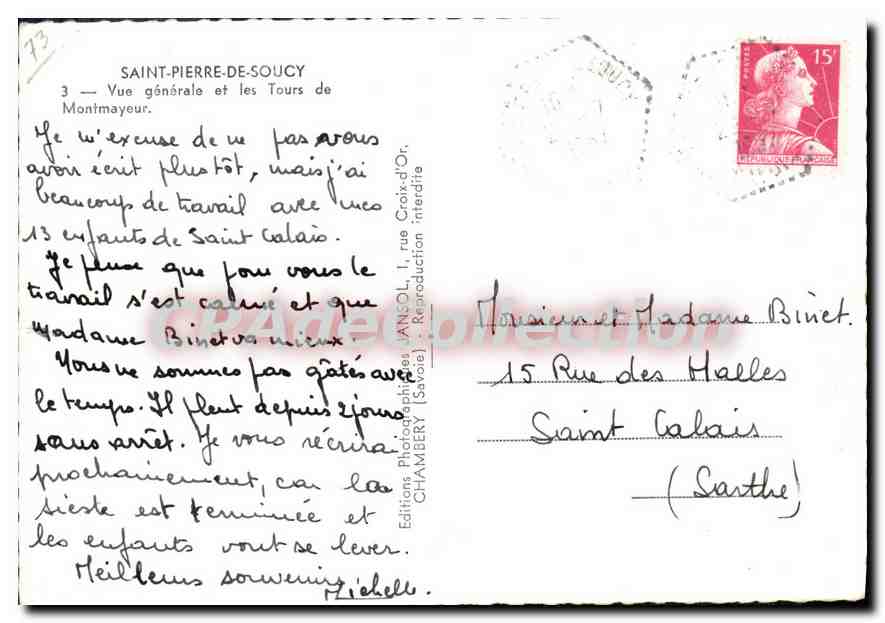 73
SAINT-PIERRE-DE-SOUCY
3 — Vue générale et les Tours de
Montmayeur.
Je m'excuse de ne pas vous
avoir écrit plus tôt, mais j'ai
beaucoup de travail avec mes
13 enfants de Saint Calais.
Je pense que pour vous le
travail s'est calmé et que
Madame Binet va mieux.
Nous ne sommes pas gâtés avec
le temps. Il pleut depuis 2 jours
sans arrêt. Je vous récrirai
prochainement, car la
sieste est terminée et
les enfants vont se lever.
Meilleurs souvenirs
Michelle.
Editions Photographiques JANSOL, 1, rue Croix-d'Or,
CHAMBERY (Savoie) - Reproduction interdite
POSTES
15F
REPUBLIQUE FRANÇAISE
Monsieur et Madame Binet.
15 Rue des Halles
Saint Calais
(Sarthe)
CPAdeCollection